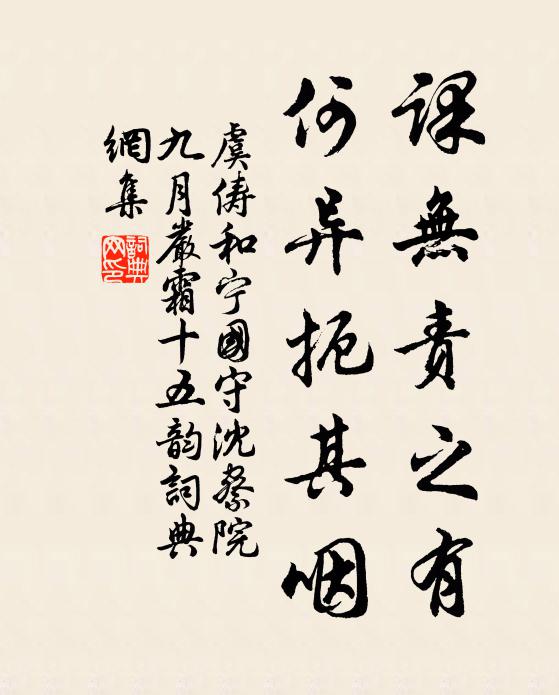 課無責之有
何异扼其咽
虞俦和宁國守沈察院
九月嚴霜十五韵詞典
網集
詞典网印